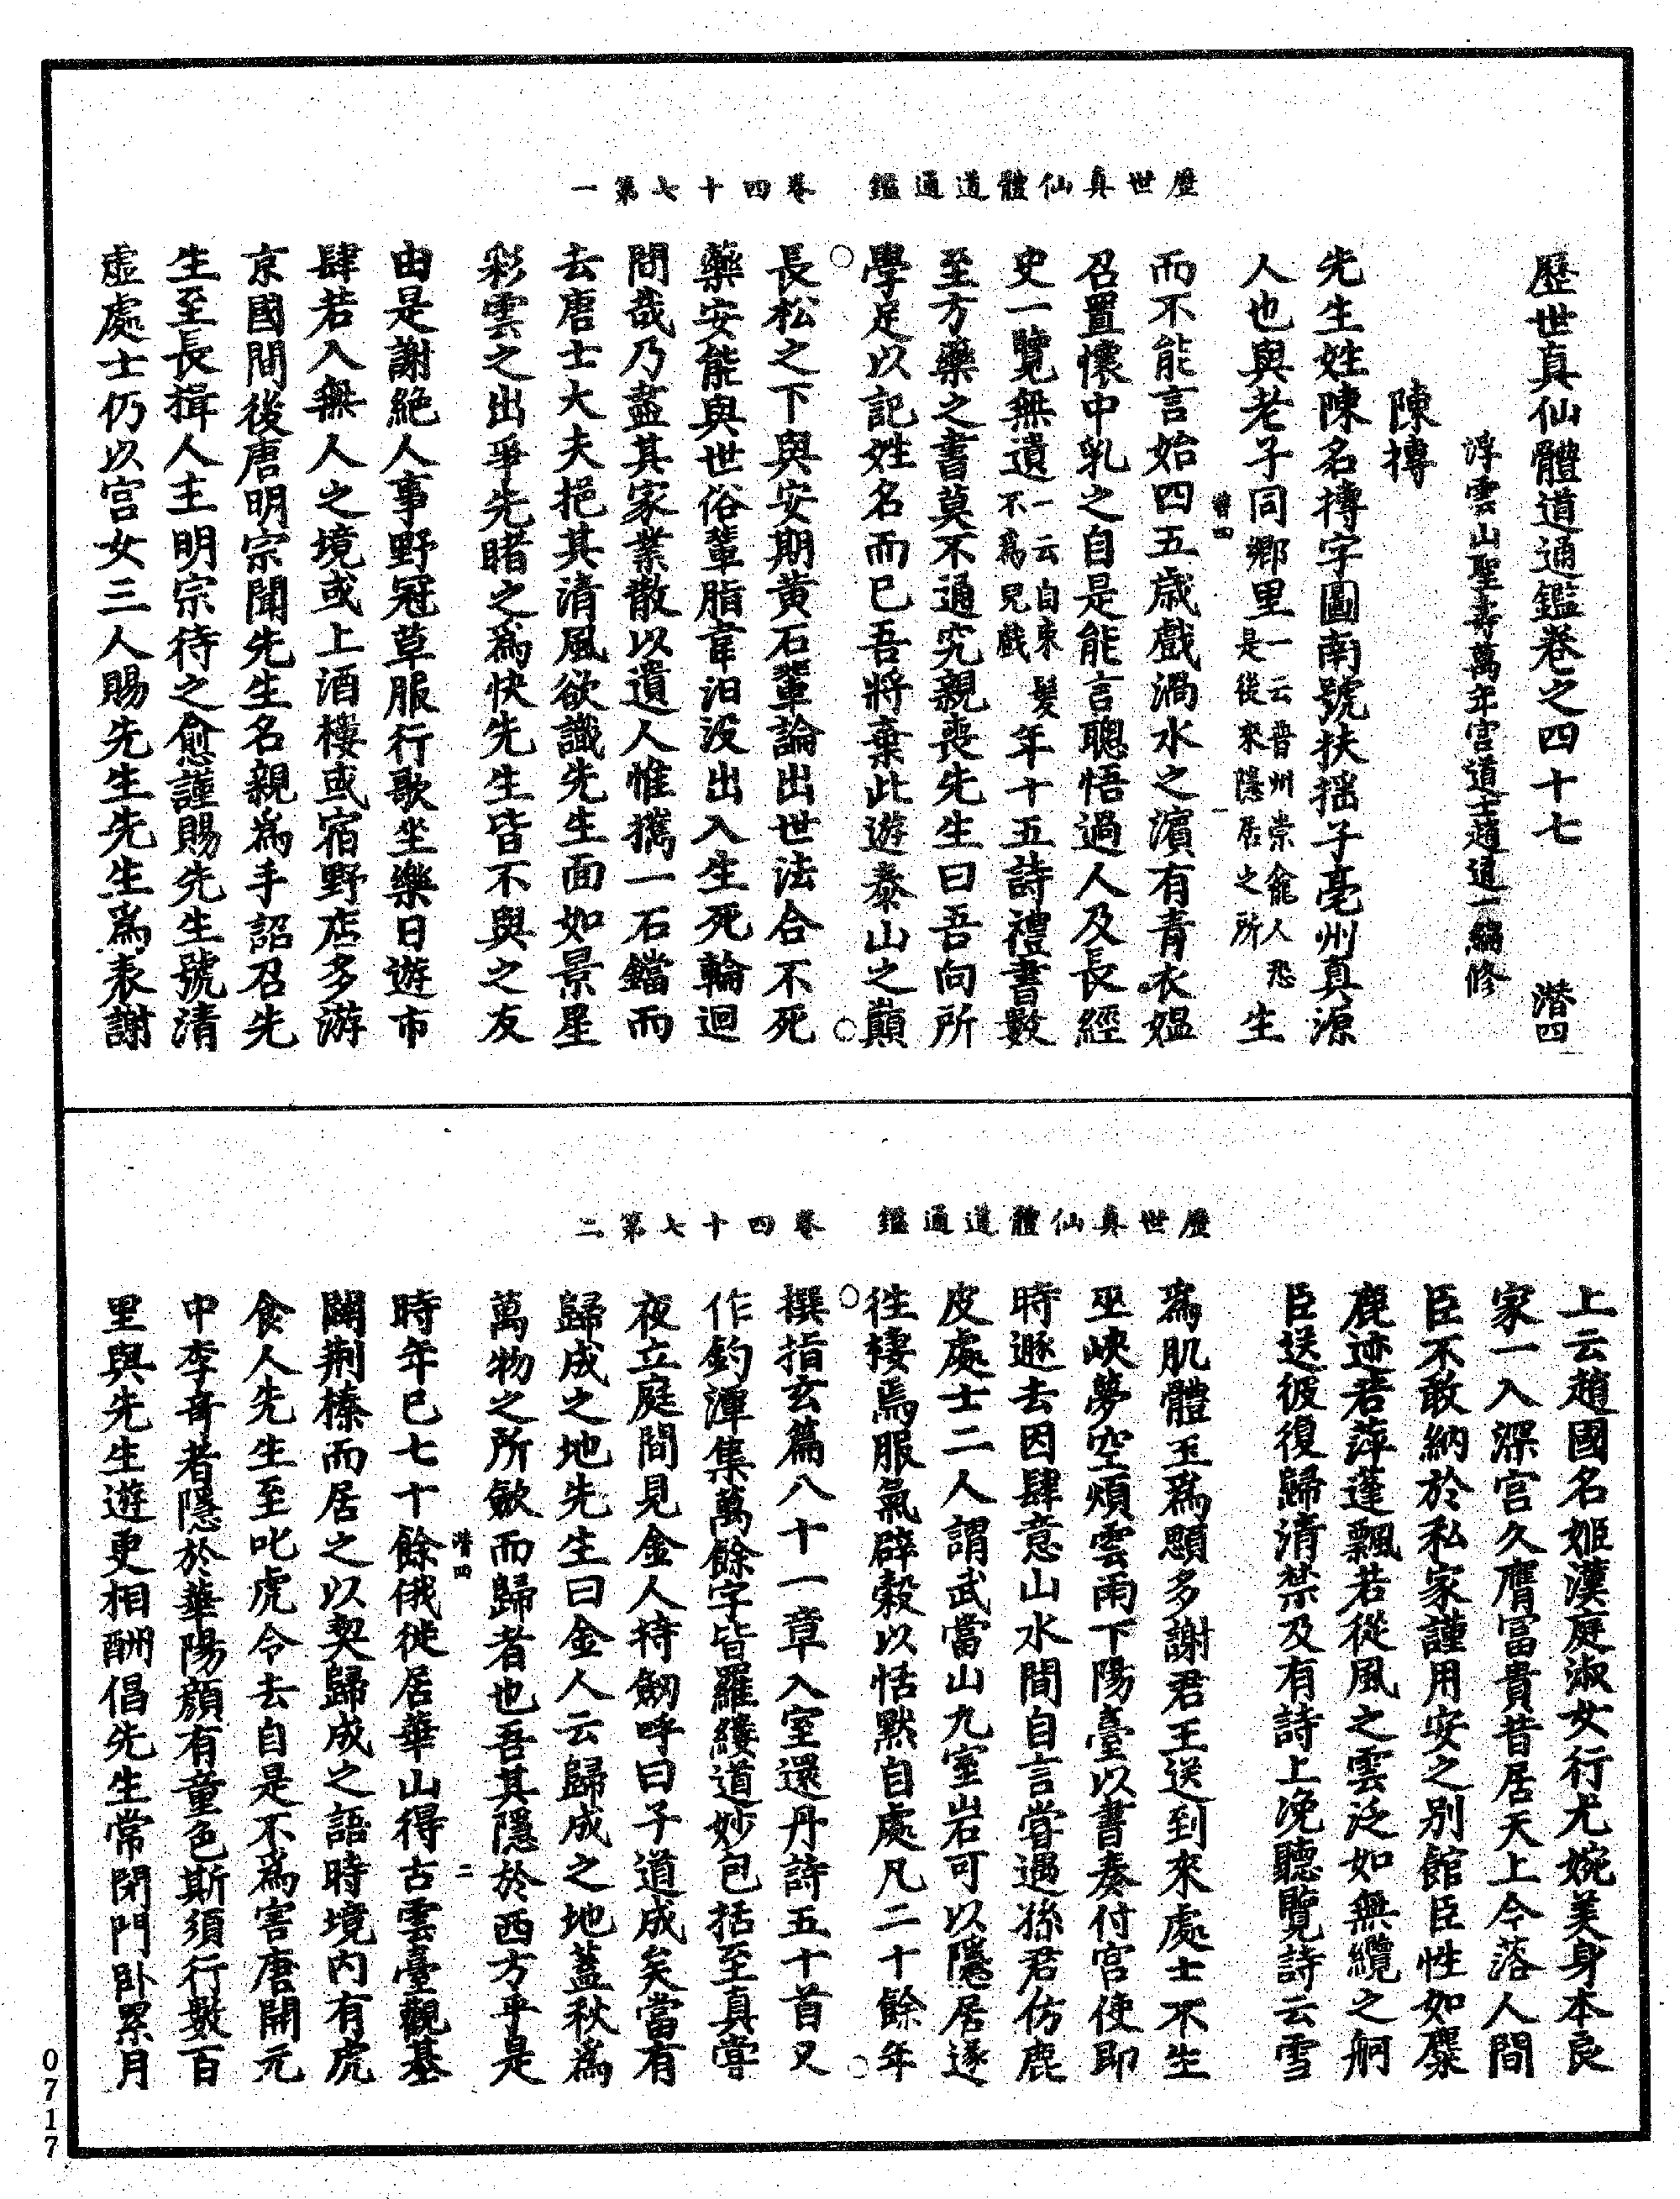 歷世真仙體道通鑑　卷四十七第一
歷世真仙體道通鑑卷之四十七　潛四
浮雲山聖壽萬年宮道士趙道一編修
陳摶
先生姓陳名摶字圖南號扶搖子亳州真源
人也與老子同鄉里一云晋州崇龕人恐是後來隱居之所生
潛四　一
而不能言始四五歲戲渦水之濱有青衣媼
召置懷中乳之自是能言聰悟過人及長經
史一覽無遺一云自束髮不為兒戲年十五詩禮書數
至方藥之書莫不通究親喪先生曰吾向所
學足以記姓名而已吾將棄此遊泰山之巔
長松之下與安期黃石輩論出世法合不死
藥安能與世俗輩脂韋汩沒出入生死輪迴
間哉乃盡其家業散以遺人惟攜一石鐺而
去唐士大夫挹其清風欲識先生面如景星
彩雲之出爭先睹之為快先生皆不與之友
由是謝絕人事野冠草服行歌坐樂日遊市
肆若入無人之境或上酒樓或宿野店多游
京國間後唐明宗聞先生名親為手詔召先
生至長揖人主明宗待之愈謹賜先生號清
虛處士仍以宮女三人賜先生先生為表謝
歷世真仙體道通鑑　卷四十七第二
上云趙國名姬漢庭淑女行尤婉美身本良
家一入深宮久膺富貴昔居天上今落人間
臣不敢納於私家謹用安之別館臣性如麋
鹿迹若萍蓬飄若從風之雲泛如無纜之舸
臣送彼復歸清禁及有詩上浼聽覽詩云雪
為肌體玉為顋多謝君王送到來處士不生
巫峽夢空煩雲雨下陽臺以書奏付宮使即
時遯去因肆意山水間自言嘗遇孫君仿鹿
皮處士二人謂武當山九室岩可以隱居遂
往棲焉服氣辟穀以恬默自處凡二十餘年
撰指玄篇八十一章入室還丹詩五十首又
作釣潭集萬餘字皆羅縷道妙包括至真嘗
夜立庭間見金人持劒呼曰子道成矣當有
歸成之地先生曰金人云歸成之地蓋秋為
萬物之所歛而歸者也吾其隱於西方乎是
潛四　二
時年已七十餘俄徙居華山得古雲臺觀基
闢荆榛而居之以契歸成之語時境內有虎
食人先生至叱虎令去自是不為害唐開元
中李奇者隱於華陽顏有童色斯須行數百
里與先生遊更相酬倡先生常閉門臥累月
0717